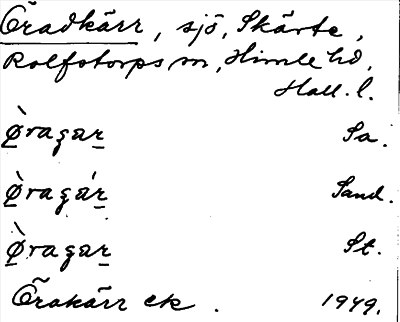 Öradkärr, sjö, Skärte,
Rolfstorps sn, Himle hd,
Hall. l.
Ø̀ragar Sa.
Ø̀ragár Sand.
Ø̀ragar St.
Örakärr ek . 1949.